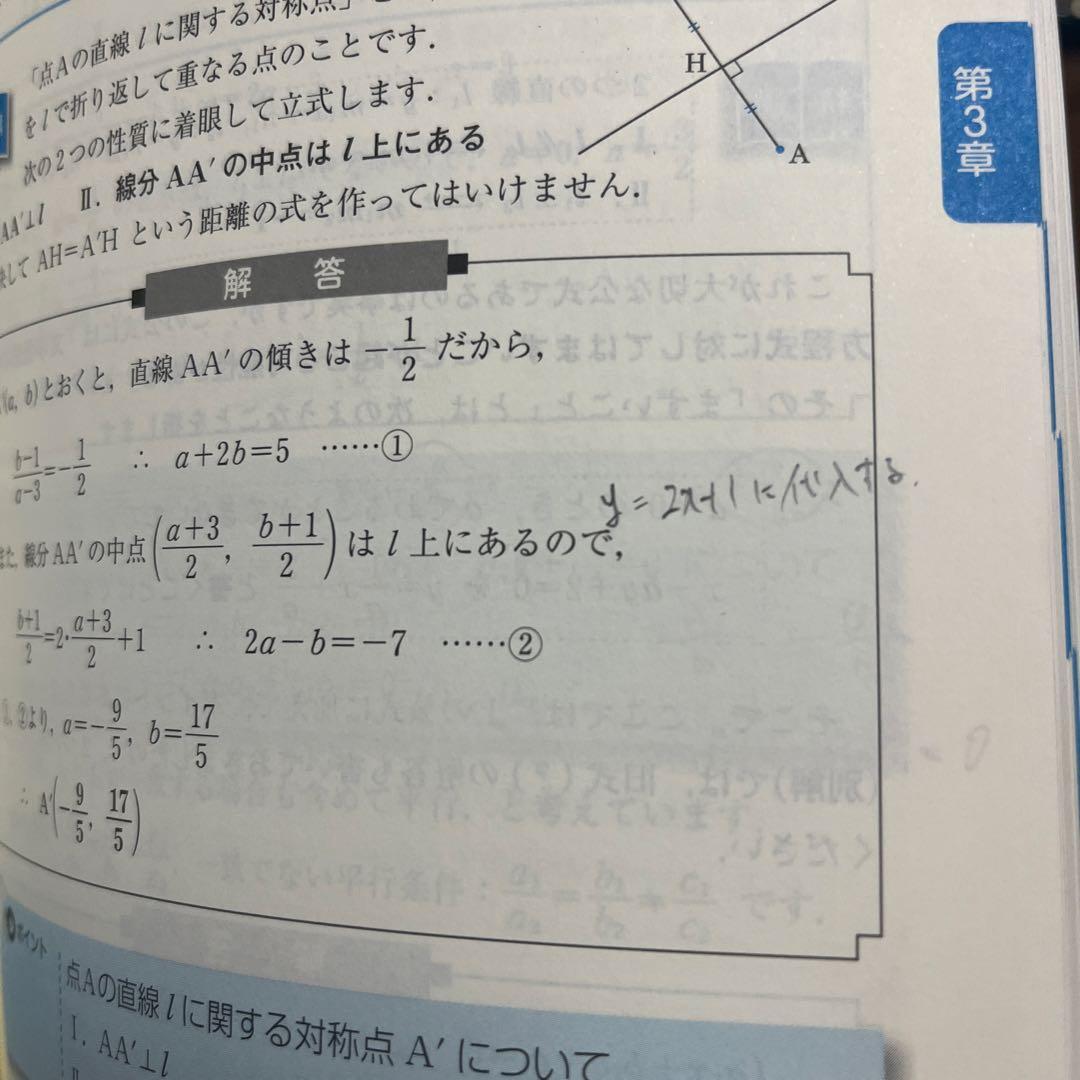 「点Aの直線lに関する対称点」と
をlで折り返して重なる点のことです.
次の2つの性質に着眼して立式します.
AA′⊥l II. 線分AA′の中点はl上にある
して AH=A′H という距離の式を作ってはいけません.
H
A
第3章
解 答
(a, b)とおくと, 直線AA′の傾きは −1/2 だから,
(b−1)/(a−3)=−1/2 ∴ a+2b=5 ……①
y=2x+1に代入する.
また, 線分AA′の中点((a+3)/2, (b+1)/2)はl上にあるので,
(b+1)/2=2·(a+3)/2+1 ∴ 2a−b=−7 ……②
①, ②より, a=−9/5, b=17/5
∴ A′(−9/5, 17/5)
ポイント
点Aの直線lに関する対称点A′について
I. AA′⊥l